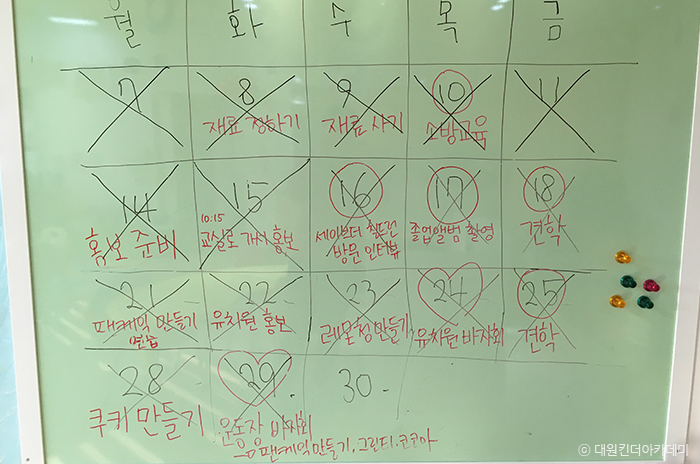 월 화 수 목 금
7 8 9 10 11
재료 정하기 재료 사기 소방교육
14 15 16 17 18
10:15
홍보 준비 교실로 가서 홍보 세이브더 칠드런 졸업앨범 촬영 견학
방문 인터뷰
21 22 23 24 25
팬케익 만들기 유치원 홍보 레몬청 만들기 유치원 바자회 견학
연습
28 29 30
쿠키 만들기 운동장 바자회
팬케익 만들기. 그린티. 코코아
© 대원킨더아카데미